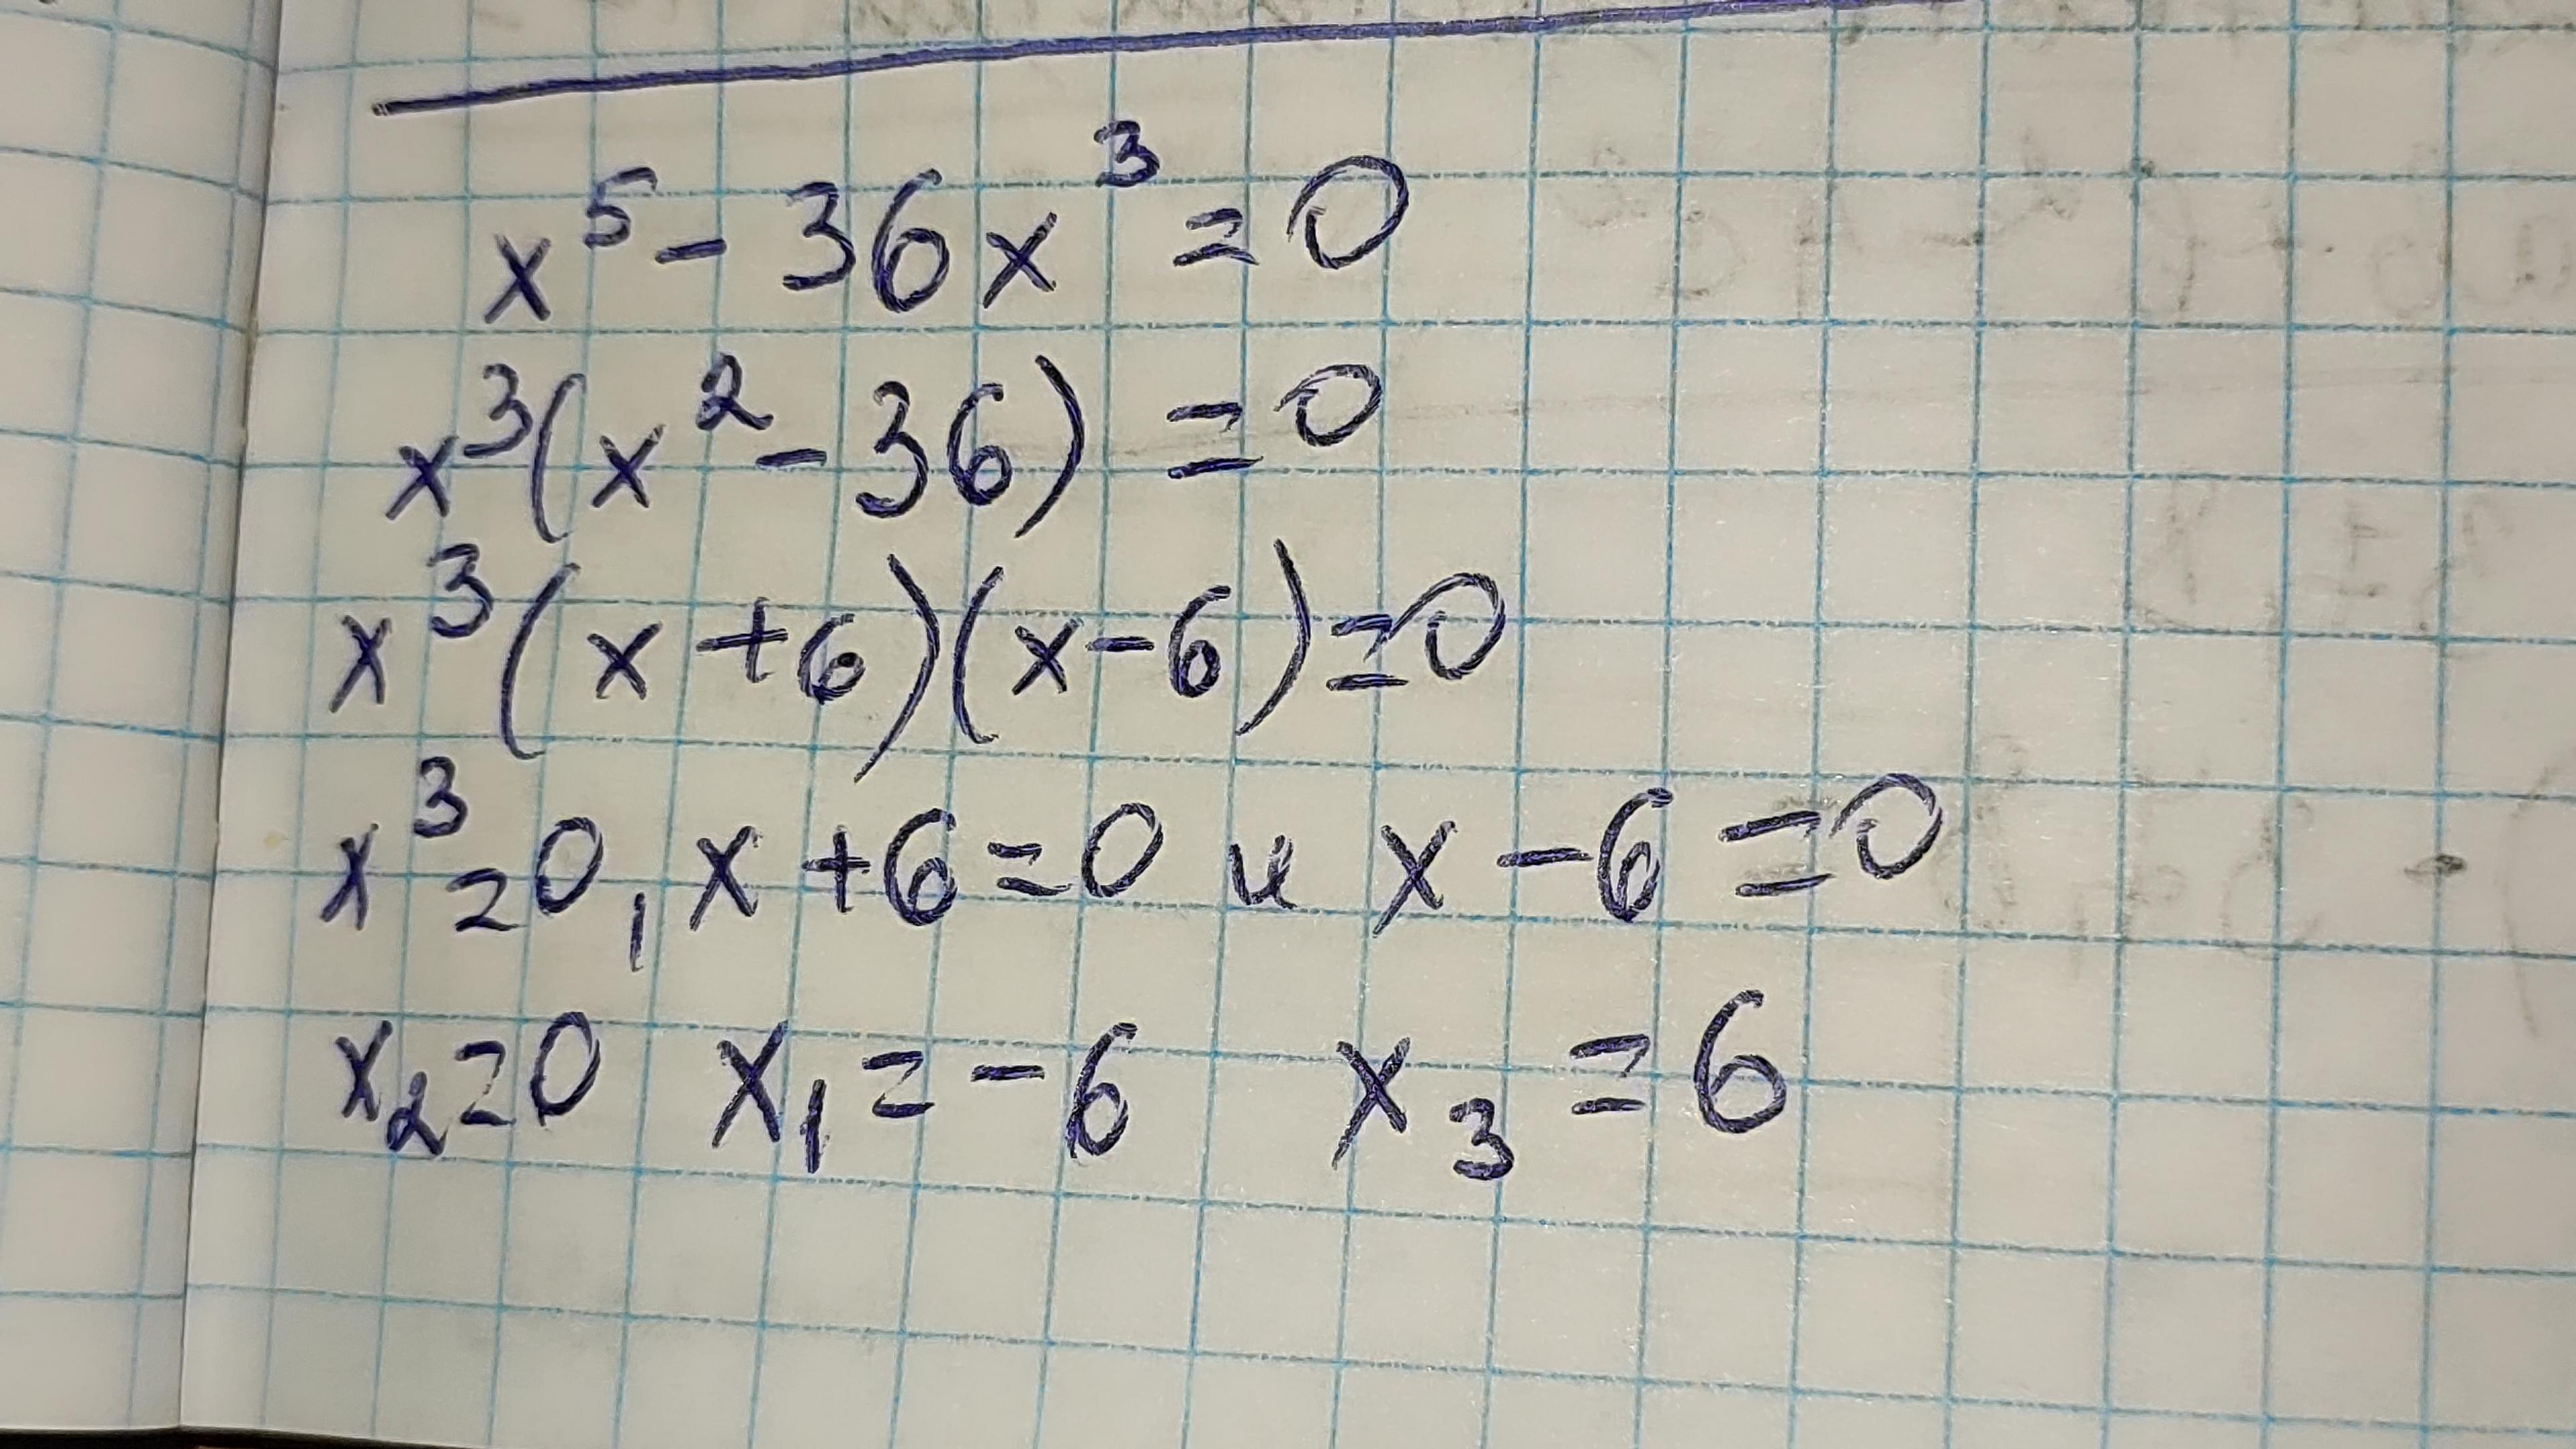 x⁵ - 36x³ = 0
x³(x² - 36) = 0
x³(x + 6)(x - 6) = 0
x³ = 0, x + 6 = 0 и x - 6 = 0
x₂ = 0 x₁ = -6 x₃ = 6